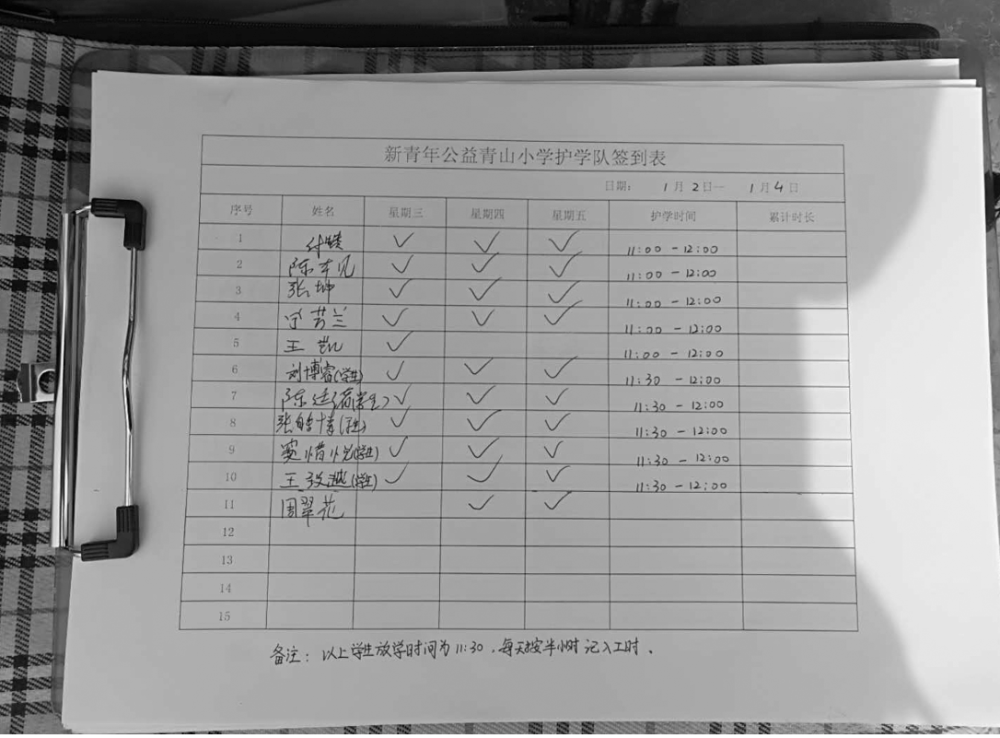 新青年公益青山小学护学队签到表
日期： 1月2日— 1月4日
序号 姓名 星期三 星期四 星期五 护学时间 累计时长
1 付 ✓ ✓ ✓ 11:00-12:00
2 陈 ✓ ✓ ✓ 11:00-12:00
3 张坤 ✓ ✓ ✓ 11:00-12:00
4 芳兰 ✓ ✓ ✓ 11:00-12:00
5 王凯 ✓ 11:00-12:00
6 刘博睿(学生) ✓ ✓ ✓ 11:30-12:00
7 陈 (学生) ✓ ✓ ✓ 11:30-12:00
8 张 ✓ ✓ ✓ 11:30-12:00
9 窦惜 (学生) ✓ ✓ ✓ 11:30-12:00
10 王 (学生) ✓ ✓ ✓ 11:30-12:00
11 周翠花 ✓ ✓
12
13
14
15
备注：以上学生放学时间为11:30，每天按半小时记入工时。